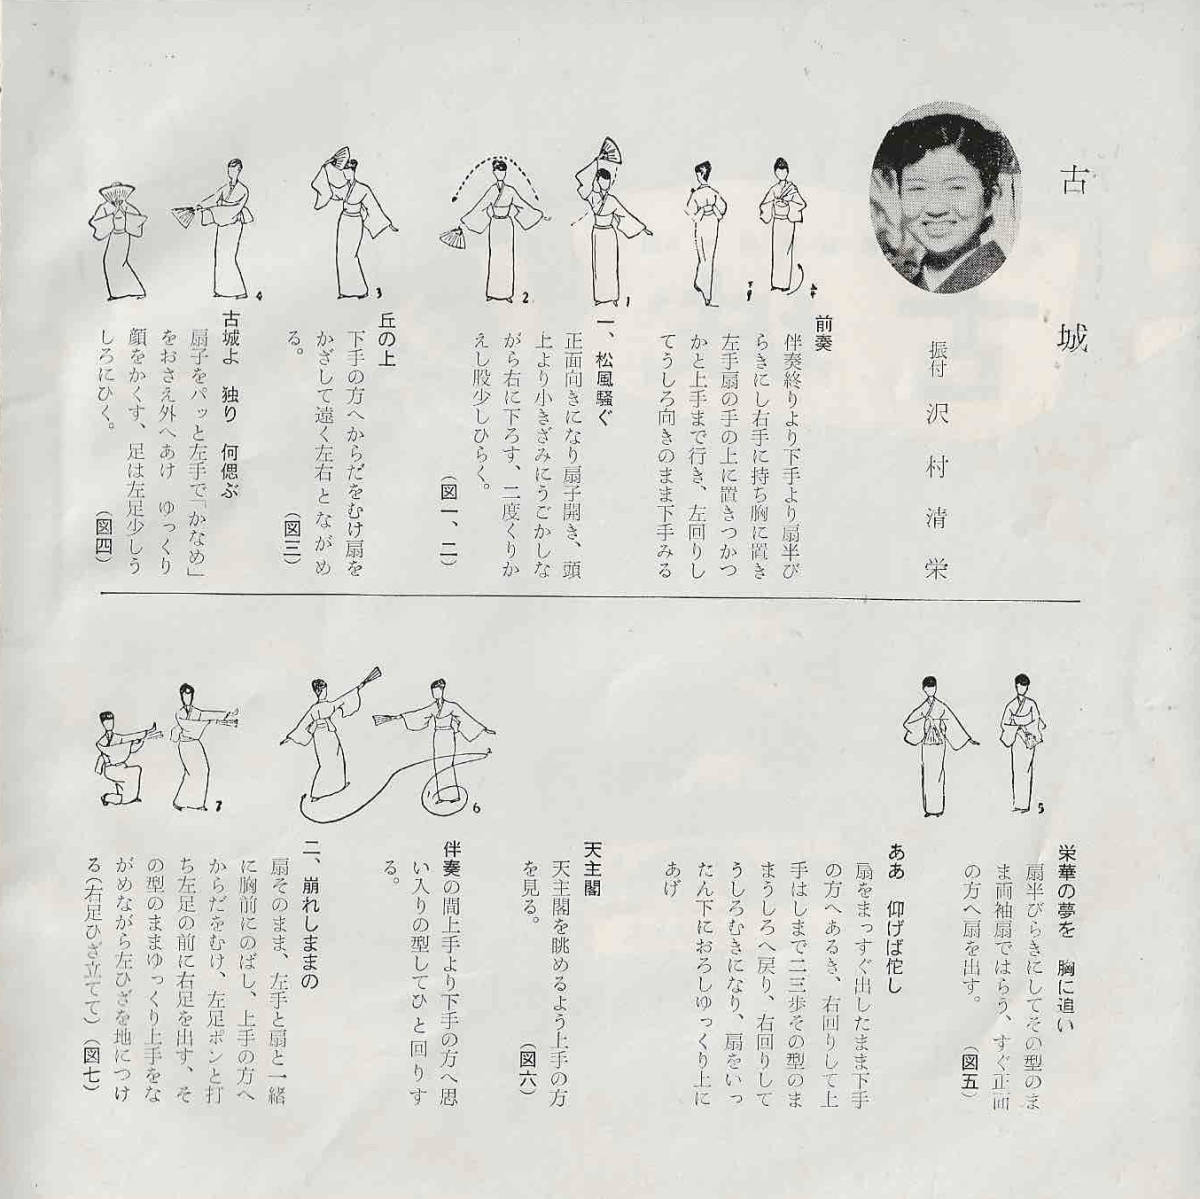 古城
振付 沢村清栄
前奏
伴奏終りより下手より扇半び
らきにし右手に持ち胸に置き
左手扇の手の上に置きつかつ
かと上手まで行き、左回りし
てうしろ向きのまま下手みる
一、松風騒ぐ
正面向きになり扇子開き、頭
上より小きざみにうごかしな
がら右に下ろす、二度くりか
えし股少しひらく。
(図一、二)
丘の上
下手の方へからだをむけ扇を
かざして遠く左右とながめ
る。
(図三)
古城よ 独り 何偲ぶ
扇子をパッと左手で「かなめ」
をおさえ外へあけ ゆっくり
顔をかくす、足は左足少しう
しろにひく。
(図四)
1
2
3
4
栄華の夢を 胸に追い
扇半びらきにしてその型のま
ま両袖扇ではらう、すぐ正面
の方へ扇を出す。
(図五)
ああ 仰げば佗し
扇をまっすぐ出したまま下手
の方へあるき、右回りして上
手はしまで二三歩その型のま
まうしろへ戻り、右回りして
うしろむきになり、扇をいっ
たん下におろしゆっくり上に
あげ
天主閣
天主閣を眺めるよう上手の方
を見る。
(図六)
伴奏の間上手より下手の方へ思
い入りの型してひと回りす
る。
二、崩れしままの
扇そのまま、左手と扇と一緒
に胸前にのばし、上手の方へ
からだをむけ、左足ポンと打
ち左足の前に右足を出す、そ
の型のままゆっくり上手をな
がめながら左ひざを地につけ
る(右足ひざ立てて)(図七)
5
6
7